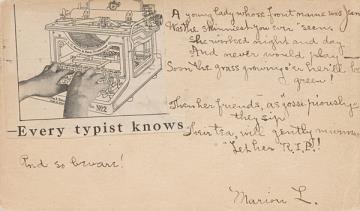 A young lady whose front name was Jean
Was the skinniest you ever seen,
She worked night and day
And never would play
Soon the grass growing o'er her'll be
green!
Then her friends, as "gossipiously"
they sip
Their tea, will gently murmur
"Let her R.I.P.!"
Marion L.
No 2
Every typist knows
And so beware!